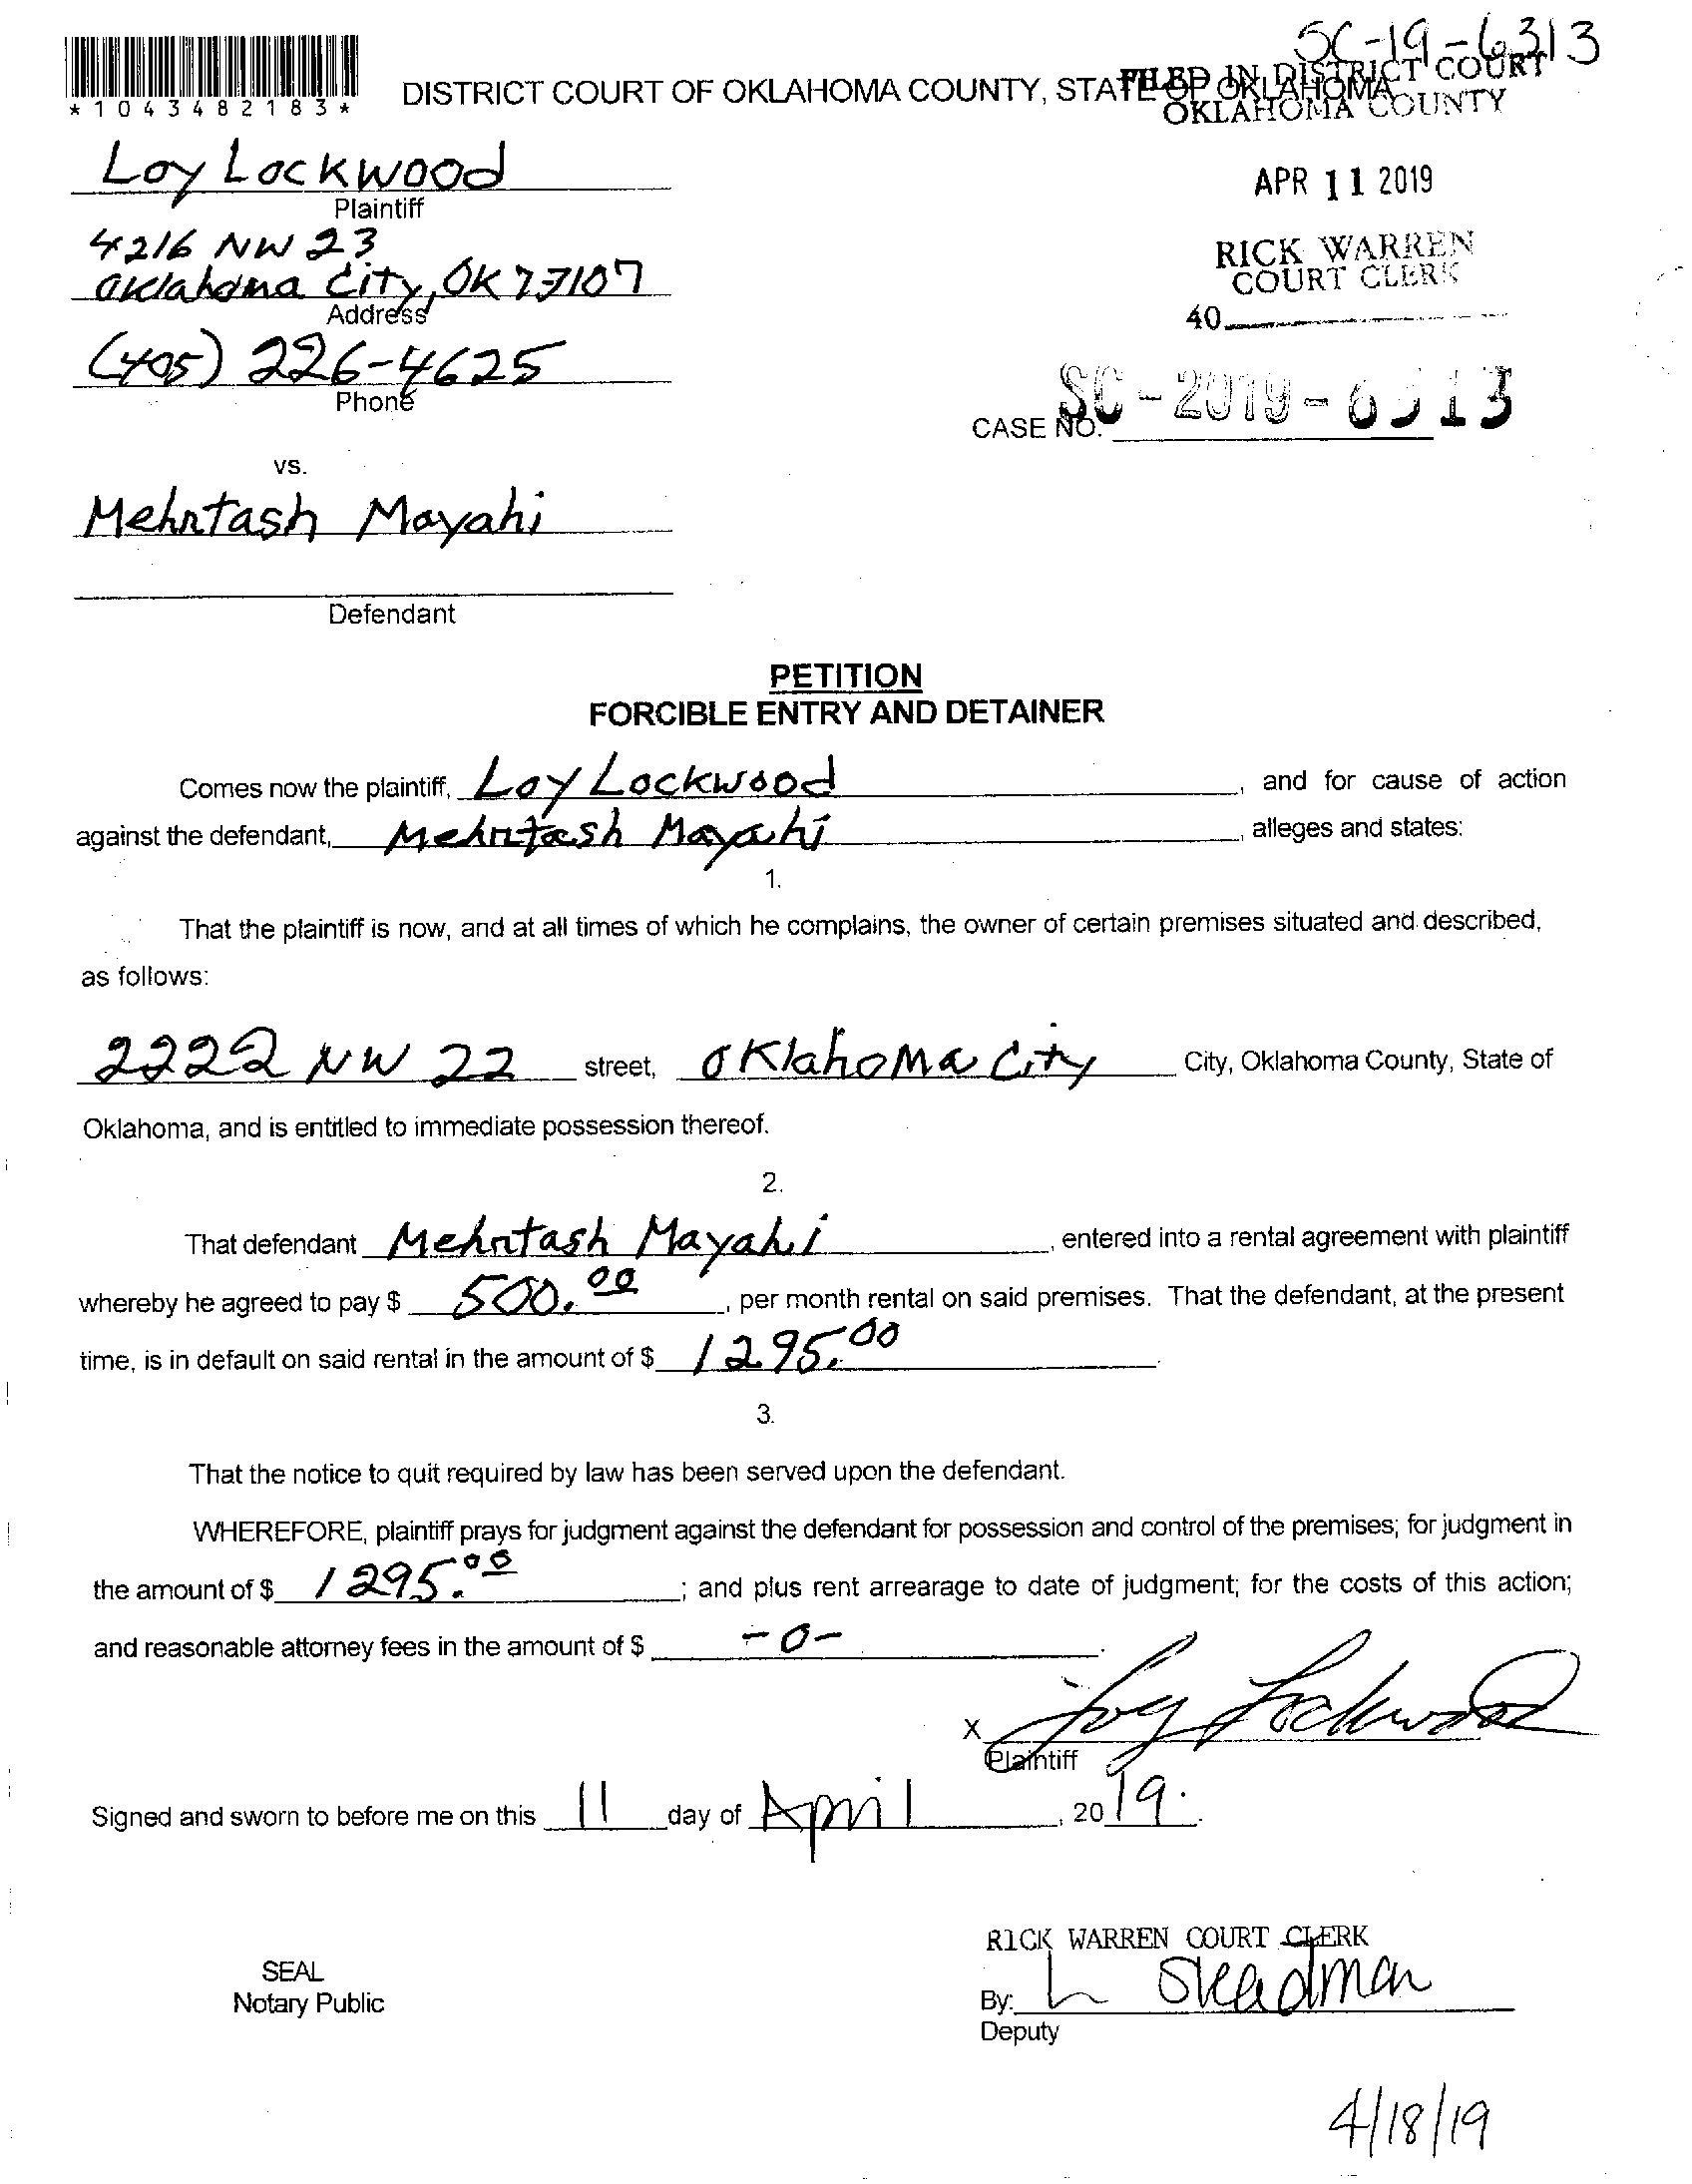 SC-19-6313
*1043482183*
DISTRICT COURT OF OKLAHOMA COUNTY, STATE OF OKLAHOMA
FILED IN DISTRICT COURT
OKLAHOMA COUNTY
Loy Lockwood
Plaintiff
APR 11 2019
4216 NW 23
Oklahoma City, OK 73107
Address
RICK WARREN
COURT CLERK
40
(405) 226-4625
Phone
SC-2019-6313
CASE NO.
vs.
Mehrtash Mayahi
Defendant
PETITION
FORCIBLE ENTRY AND DETAINER
Comes now the plaintiff, Loy Lockwood, and for cause of action
against the defendant, Mehrtash Mayahi, alleges and states:
1.
That the plaintiff is now, and at all times of which he complains, the owner of certain premises situated and described,
as follows:
2222 NW 22 street, Oklahoma City City, Oklahoma County, State of
Oklahoma, and is entitled to immediate possession thereof.
2.
That defendant Mehrtash Mayahi, entered into a rental agreement with plaintiff
whereby he agreed to pay $ 500.00, per month rental on said premises. That the defendant, at the present
time, is in default on said rental in the amount of $ 1295.00.
3.
That the notice to quit required by law has been served upon the defendant.
WHEREFORE, plaintiff prays for judgment against the defendant for possession and control of the premises; for judgment in
the amount of $ 1295.00; and plus rent arrearage to date of judgment; for the costs of this action;
and reasonable attorney fees in the amount of $ -0-.
X Loy Lockwood
Plaintiff
Signed and sworn to before me on this 11 day of April, 2019.
RICK WARREN COURT CLERK
SEAL
Notary Public
By: L Steadman
Deputy
4/18/19